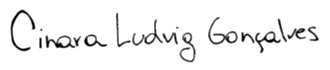 Cinara Ludvig Gonçalves